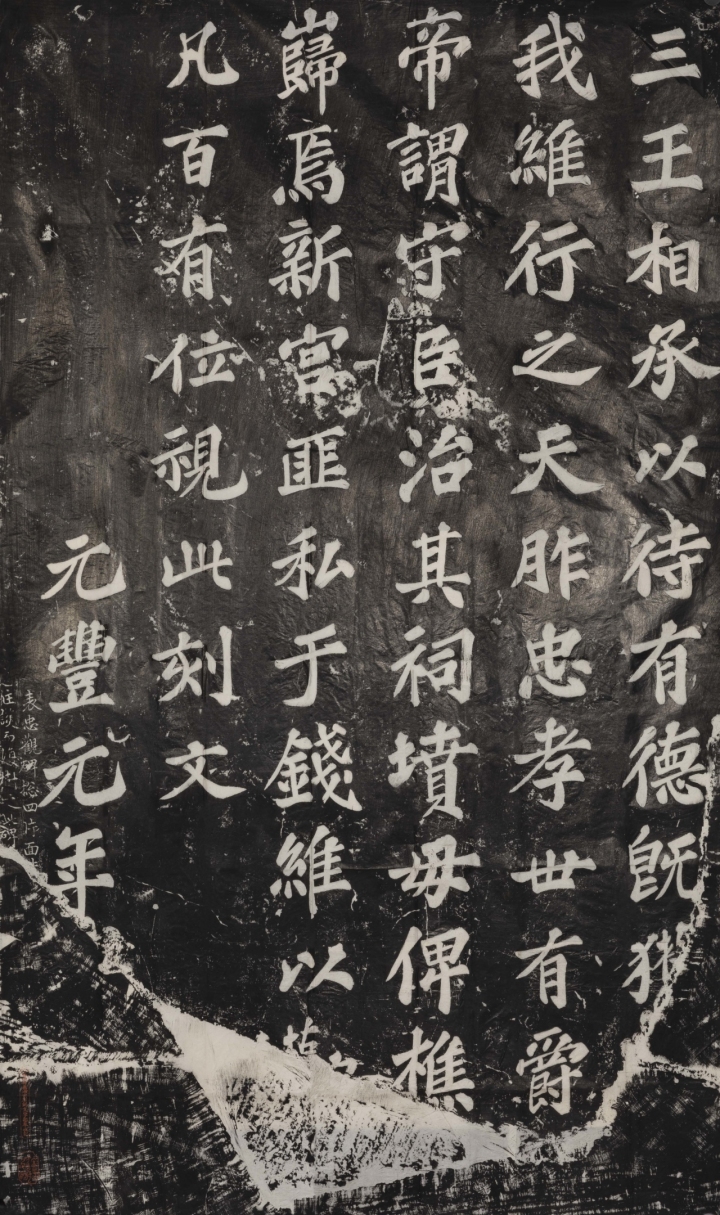 三王相承以待有德既
我維行之天胙忠孝世有爵
帝謂守臣治其祠墳毋俾樵
巋焉新宮匪私于錢維以
凡百有位視此刻文
元豐元年
表忠觀碑